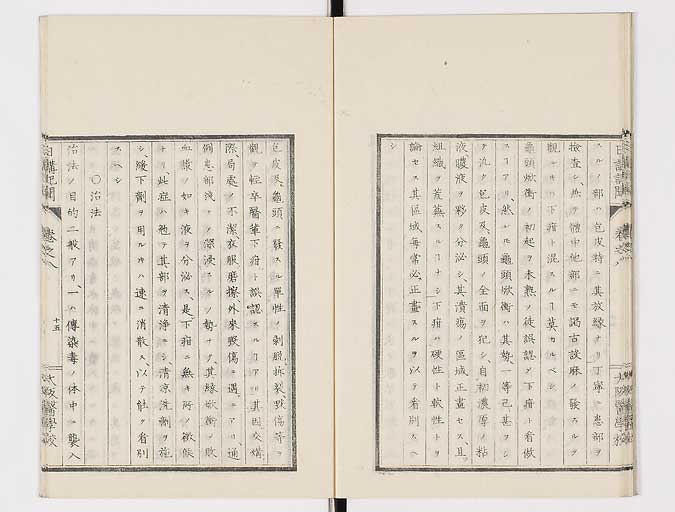 日講記聞
卷之八
大阪醫學校
スルノ部ハ包皮特ニ其放縁ナリ丁寧ニ患部ヲ
檢査シ、并ヲ體中他部ニモ謁古談麻ノ發スルヲ
觀レハ下疳ト混スルヿ莫カルベシ
龜頭焮衝ノ初起ヲ未熟ノ徒誤認シ下疳ト看做
スヿアリ、然レ𪜈龜頭焮衝ハ其勢一等已甚シ
ク汎ク包皮及龜頭ノ全面ヲ犯シ、自初濃厚ノ粘
液膿液ヲ夥ク分泌シ、其潰瘍ノ區域正畫セス、且
組織ヲ荒蕪スルヿナシ下疳ハ硬性ト軟性トヲ
論セス其區域毎常必正畫スルヲ以テ看別スヘ
シ
包皮及龜頭ニ發スル單性ノ剝脫拆裂、毀傷等ヲ
觀ヲ輕卒醫輩下疳ト誤認スルヿアリ其因交媾
際局處ノ不潔、衣服磨擦外來毀傷ニ遇フニアリ、通
例患部淺クシ深浸スルノ勢ナク、其緣焮衝ノ敗
血膿ノ如キ液ヲ分泌ス、是下疳ニ無キ所ノ徵候
ナリ、此症ハ他ナシ其部ヲ清淨ニシ、清凉洗劑ヲ施
シ、緩下劑ヲ用ルキハ速ニ消散ス以テ能ク看別
スヘシ
○治法
治法ノ目的二般アリ、一ハ傳染毒ノ体中ニ襲入
日講記聞
卷之八
十五
大阪醫學校